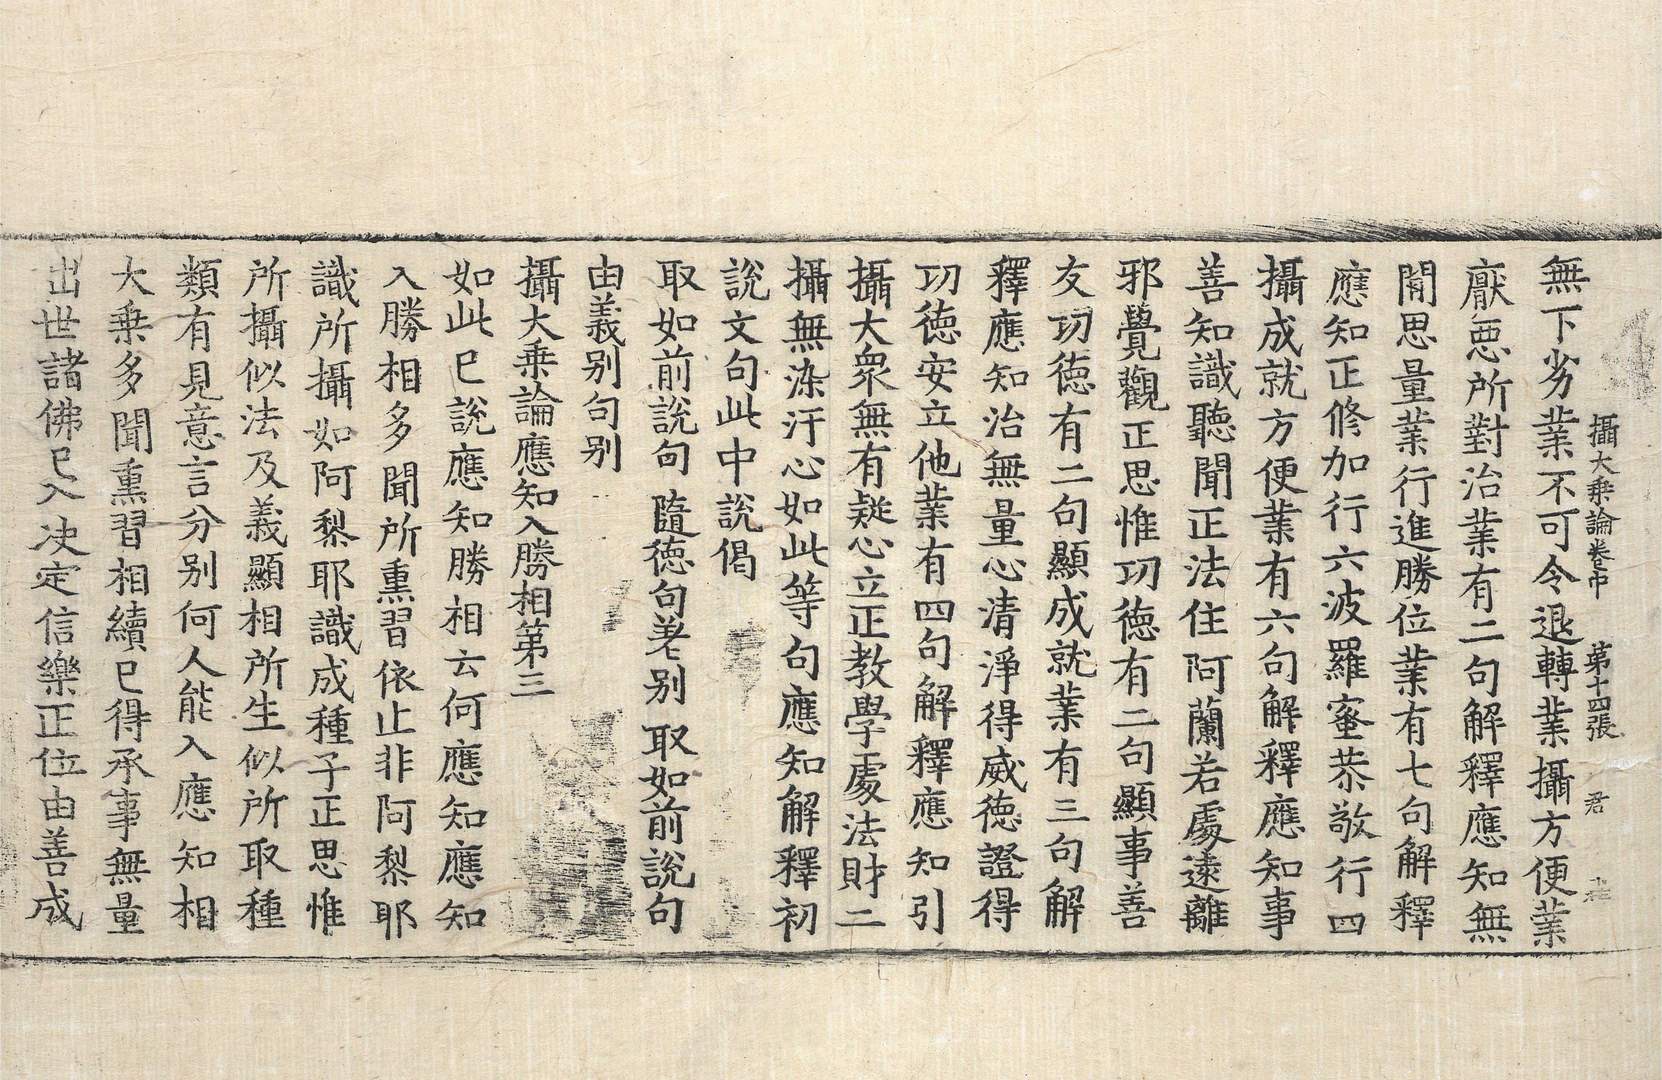 攝大乘論卷中　第十四張　君
無下劣業不可令退轉業攝方便業
厭惡所對治業有二句解釋應知無
閒思量業行進勝位業有七句解釋
應知正修加行六波羅蜜恭敬行四
攝成就方便業有六句解釋應知事
善知識聽聞正法住阿蘭若處遠離
邪覺觀正思惟功德有二句顯事善
友功德有二句顯成就業有三句解
釋應知治無量心清淨得威德證得
功德安立他業有四句解釋應知引
攝大眾無有疑心立正教學處法財二
攝無染汙心如此等句應知解釋初
說文句此中說偈
取如前說句　隨德句差別　取如前說句
由義別句別
攝大乘論應知入勝相第三
如此已說應知勝相云何應知應知
入勝相多聞所熏習依止非阿梨耶
識所攝如阿梨耶識成種子正思惟
所攝似法及義顯相所生似所取種
類有見意言分別何人能入應知相
大乘多聞熏習相續已得承事無量
出世諸佛已入决定信樂正位由善成